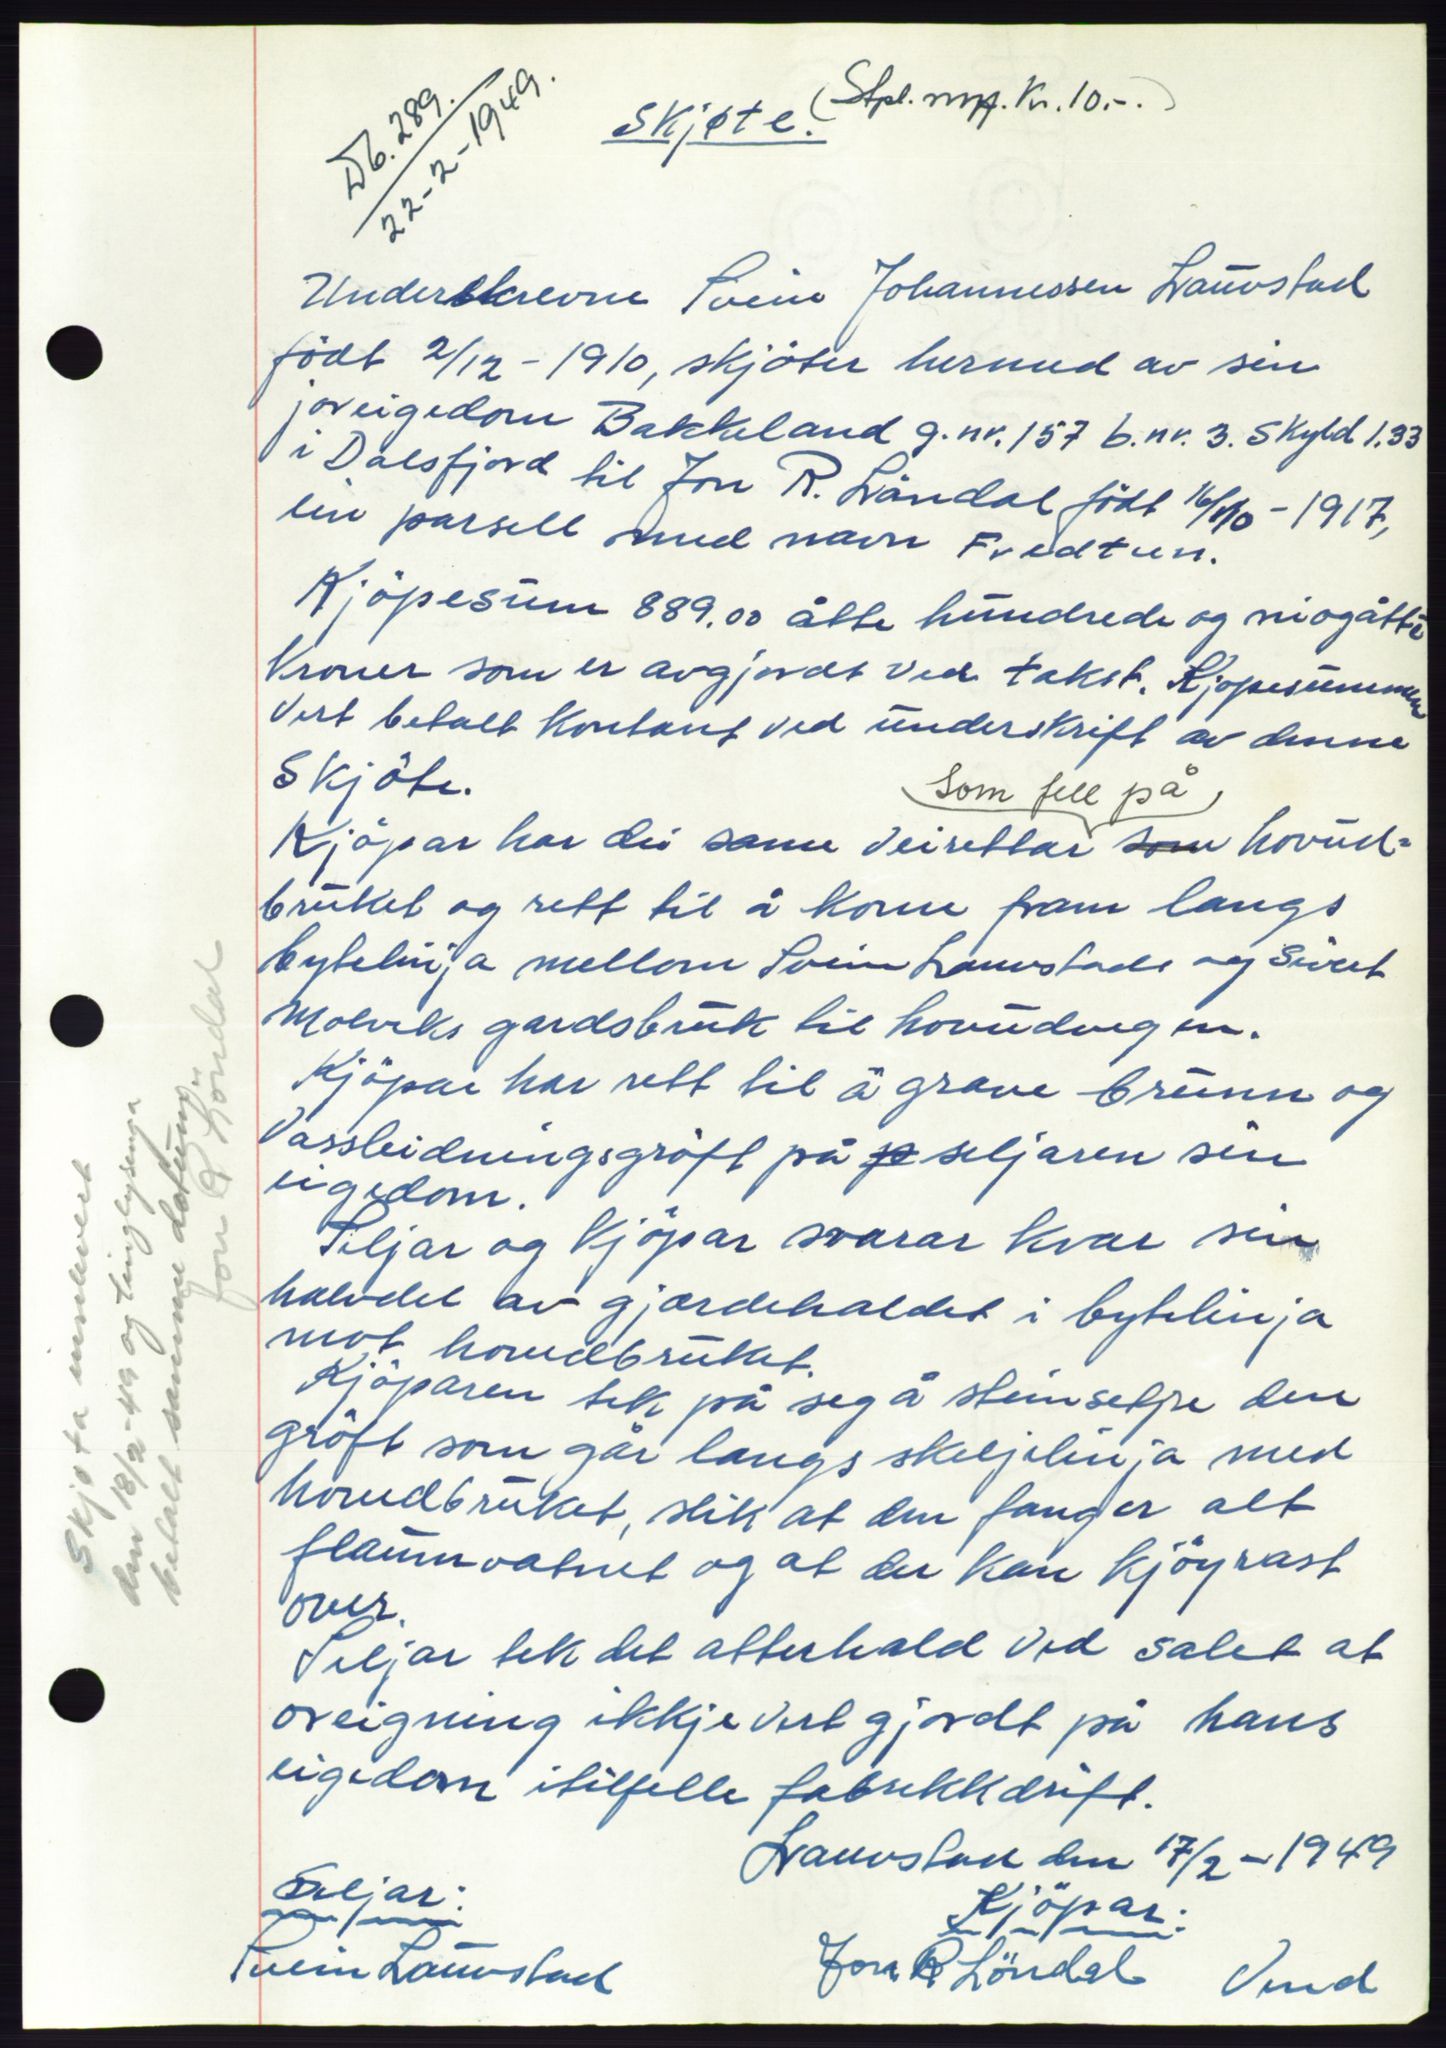 Db. 289.
22-2-1949.
Skjøte. (Stpl. mrk. Kr. 10.-.)
Underskrevne Svein Johannessen Lauvstad
födt 2/12 - 1910, skjöter hermed av sin
joreigedom Bakkeland g.nr. 157 b.nr. 3. Skyld 1.33
i Dalsfjord til Jon R. Löndal födt 16/10 - 1917,
ein parsell med navn Fredtun.
Kjöpesum 889.00 åtte hundrede og niogåtti
kroner som er avgjordt ved takst. Kjöpesummen
vert betalt kontant ved underskrift av denne
Skjöte.
som fell på
Kjöpar har dei same veirettar som hovud-
bruket og rett til å kome fram langs
bytelinja mellom Svein Lauvstads og Sivert
Molviks gardsbruk til hovudvegen.
Kjöpar har rett til å grave brunn og
vassleidningsgröft på p seljaren sin
eigedom.
Seljar og kjöpar svarar kvar sin
halvdel av gjærdehaldet i bytelinja
mot hovudbruket.
Kjöparen tek på seg å steinsetje den
gröft som går langs skeljelinja med
hovudbruket, slik at den fanger alt
flaumvatnet og at der kan kjöyrast
over.
Seljar tek det atterhald ved salet at
oreigning ikkje vert gjordt på hans
eigedom itilfelle fabrikkdrift.
Lauvstad den 17/2 - 1949
Seljar:
Kjöpar:
Svein Lauvstad
Jon R Löndal
Vend
Skjøta innlevert
den 18/2-49 og tinglysinga
betalt samme datum
Jon R Löndal